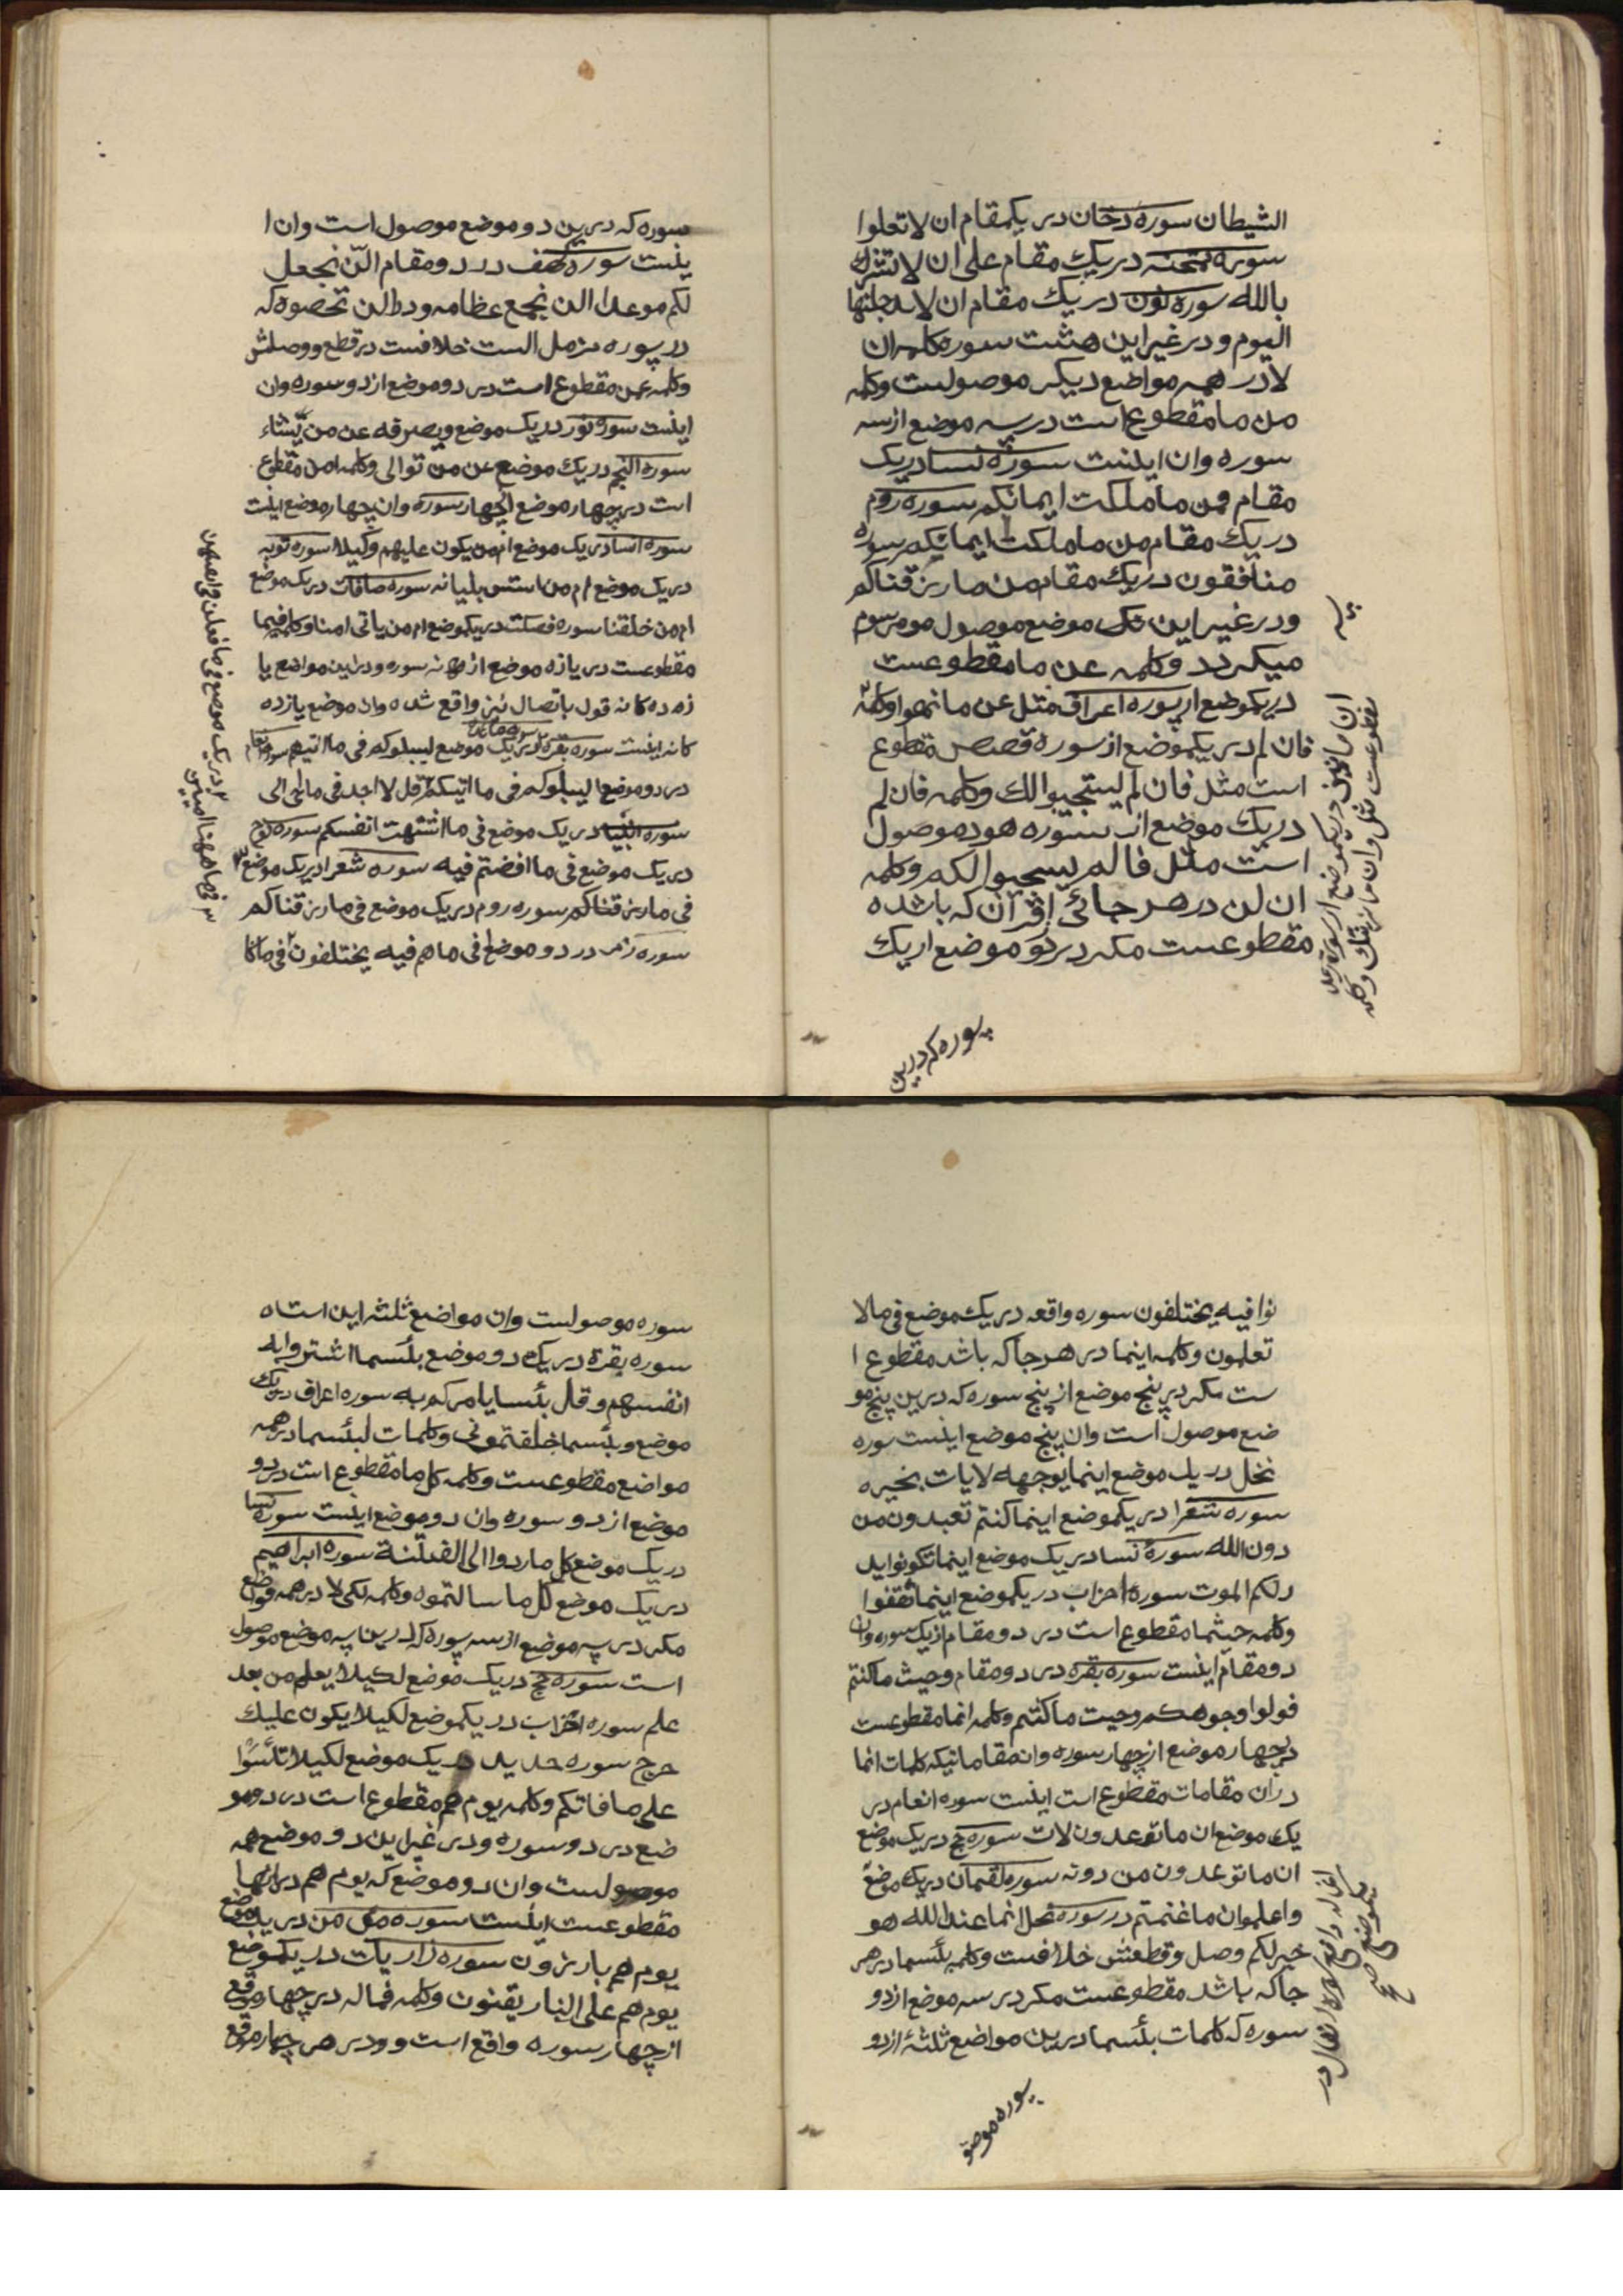 الشیطان سوره دخان در یکمقام ان لا تعلوا
سوره ممتحنه در یک مقام علی ان لا تشرک
بالله سوره نون در یک مقام ان لا ید خلنها
الیوم و در غیر این هشت سوره کلمه ان
لا در همه مواضع دیکر موصولست و کلمه
من ما مقطوع است در سه موضع از سه
سوره و ان اینست سوره نسا در یک
مقام فمن ما ملکت ایمانکم سوره روم
در یک مقام من ما ملکت ایمانکم سوره
منافقون در یک مقام من ما رزقناکم
و در غیر این یک موضع موصول مومرسوم
میکردد و کلمه عن ما مقطوعست
در یکموضع از سوره اعراف مثل عن ما نهوا و کلمه
فان لم در یکموضع از سوره قصص مقطوع
است مثل فان لم یستجیبوا لک و کلمه فان لم
در یک موضع از سوره هود موصول
است مثل فالم یستجیبوا لکم و کلمه
ان لن در هر جائی از قرآن که باشد ه
مقطوعست مکر در دو موضع از یک
سوره که درین
ان ما نرین در یکموضع از سوره رعد
مقطوعست مثل و ان ما نرینک و کلمه
سوره که درین دو موضع موصول است و ان ا
ینست سوره کهف در دو مقام الّن نجعل
لکم موعدا الن نجمع عظامه و در ان لن تحصوه که
در سوره مزمل الست خلافست در قطع و وصلش
و کلمه عن مقطوع است در دو موضع از دو سوره و ان
اینست سوره نور در یک موضع و یصرفه عن من یّشاء
سوره النجم در یک موضع عن من توالی و کلمه ام من مقطوع
است در چهار موضع از چهار سوره و ان چهار موضع اینست
سوره نسا در یک موضع ام من یکون علیهم وکیلا سوره توبه
در یک موضع ام من اسس بنیانه سوره صافات در یک موضع
ام من خلقنا سوره فصلت در یکموضع ام من یاتی امنا و کلمه فیما
مقطوعست در یازه موضع از نه سوره و در این مواضع یا
زه ده کانه قول باتصال نیز واقع شده و ان موضع یازده
کانه اینست سوره بقره در یک موضع لیبلوکم فی ما اتیکم سوره انعام
در دو موضع لیبلوکم فی ما اتیکم قل لا اجد فی ما اوحی الی
سوره انبیا در یک موضع فی ما اشتهت انفسکم سوره نور
در یک موضع فی ما افضتم فیه سوره شعرا در یک موضع
فی ما رزقناکم سوره روم در یک موضع فی ما رزقناکم
سوره زمر در دو موضع فی ما هم فیه یختلفون فی ما کا
در یک موضع فی ما فعلن فی انفسهن
فی ما ههنا امنین
نوا فیه یختلفون سوره واقعه در یک موضع فی ما لا
تعلمون و کلمه اینما در هر جا که باشد مقطوع ا
ست مکر در پنج موضع از پنج سوره که درین پنج مو
ضع موصول است و ان پنج موضع اینست سوره
نحل در یک موضع اینما یوجهه لا یات بخیره
سوره شعرا در یکموضع اینما کنتم تعبدون من
دون الله سوره نسا در یک موضع اینما تکونوا ید
رلکم الموت سوره احزاب در یکموضع اینما ثقفوا
و کلمه حیثما مقطوع است در دو مقام از یک سوره و ان
دو مقام اینست سوره بقره در دو مقام و حیث ما کنتم
فولوا وجوهکم و حیث ما کنتم و کلمه انما مقطوعست
در چهار موضع از چهار سوره و ان مقاماتیکه کلمات انما
در ان مقامات مقطوع است اینست سوره انعام در
یک موضع ان ما توعدون لات سوره حج در یک موضع
ان ما توعدون من دونه سوره لقمان در یک موضع
و اعلموان ما غنمتم در سوره نحل انما عند الله هو
خیر لکم وصل و قطعش خلافست و کلمه بئسما در هر
جا که باشد مقطوعست مکر در سه موضع از دو
سوره که کلمات بئسما درین مواضع ثلثهٔ از دو
سوره موصو
سوره موصولست و ان مواضع ثلثه این است ه
سوره بقره در یک دو موضع بئسما اشتروا به
انفسهم و قال بئسما یامرکم به سوره اعراف در یک
موضع و بئسما خلفتمونی و کلمات لبئسما در همه
مواضع مقطوعست و کلمه کل ما مقطوع است در دو
موضع از دو سوره و ان دو موضع اینست سوره نسا
در یک موضع کل ما ردوا الی الفتنة سوره ابراهیم
در یک موضع کل ما سالتموه و کلمه لکی لا در همه مواضع
مکر در سه موضع از سه سوره که درین سه موضع موصول
است سوره حج در یک موضع لکیلا یعلم من بعد
علم سوره احزاب در یکموضع لکیلا یکون علیک
حرج سوره حدید در یک موضع لکیلا تاسوا
علی ما فاتکم و کلمه یوم هم مقطوع است در دو مو
ضع در دو سوره و در غیر این دو موضع همه
موصولست و ان دو موضع که یوم هم در انها
مقطوعست اینست سوره مؤمن در یک موضع
یوم هم بارزون سوره ذاریات در یکموضع
یوم هم علی النار یفتنون و کلمه فمال در چهار موقع
از چهار سوره واقع است و و در هر چهار موقع